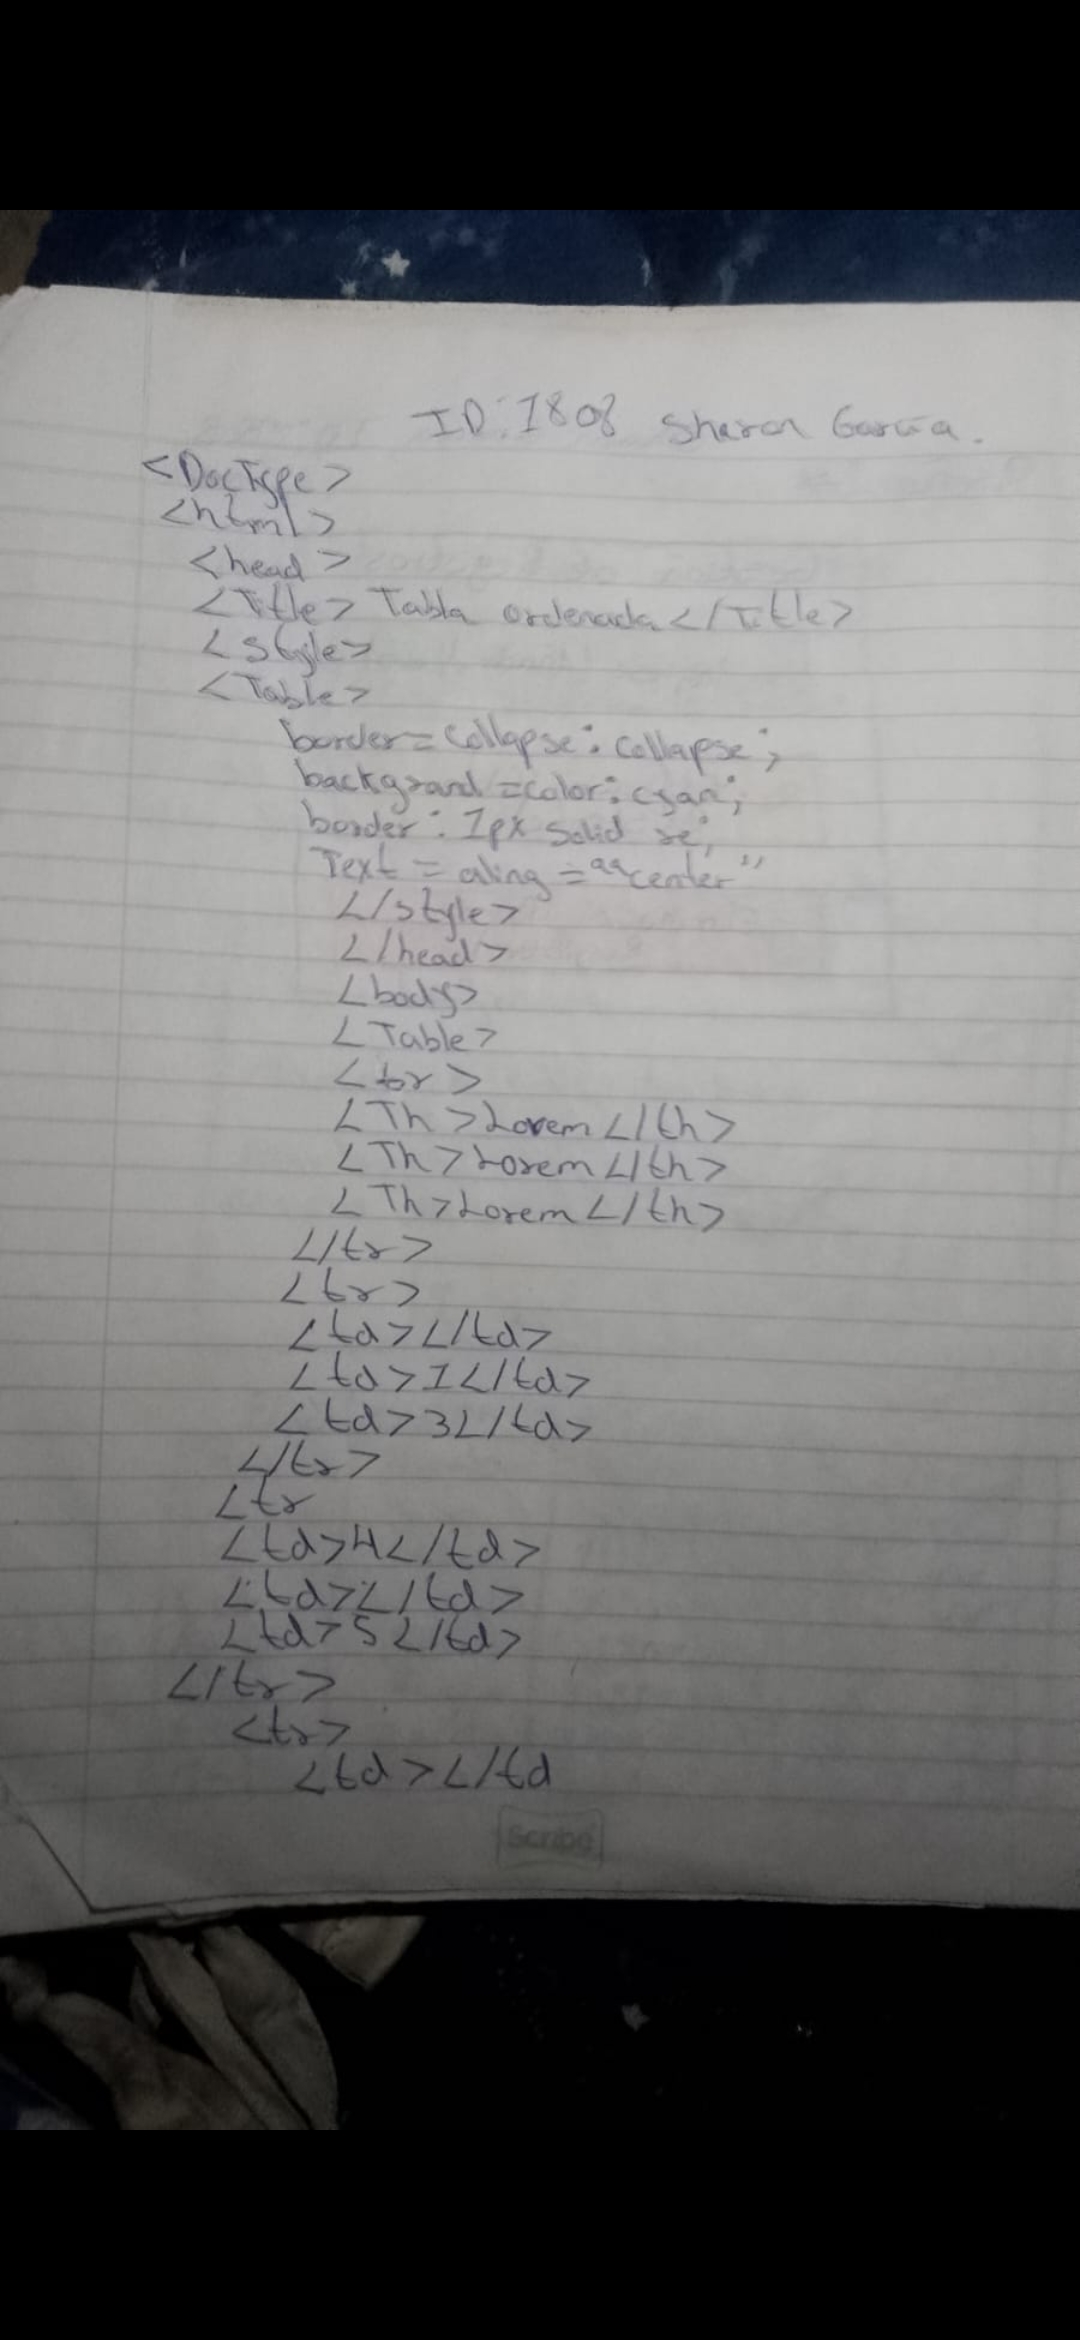 ID: 1808 Sharon García.
<DocType>
<html>
<head>
<Title> Tabla ordenada </Title>
<style>
<Table>
border = collapse: collapse;
backgrand = color: cyan;
border: 1px solid re;
Text = aling = "center"
</style>
</head>
<body>
<Table>
<tr>
<Th>Lorem</th>
<Th>Lorem</th>
<Th>Lorem</th>
</tr>
<tr>
<td></td>
<td>1</td>
<td>3</td>
</tr>
<tr
<td>4</td>
<td></td>
<td>5</td>
</tr>
<tr>
<td></td
Scribe